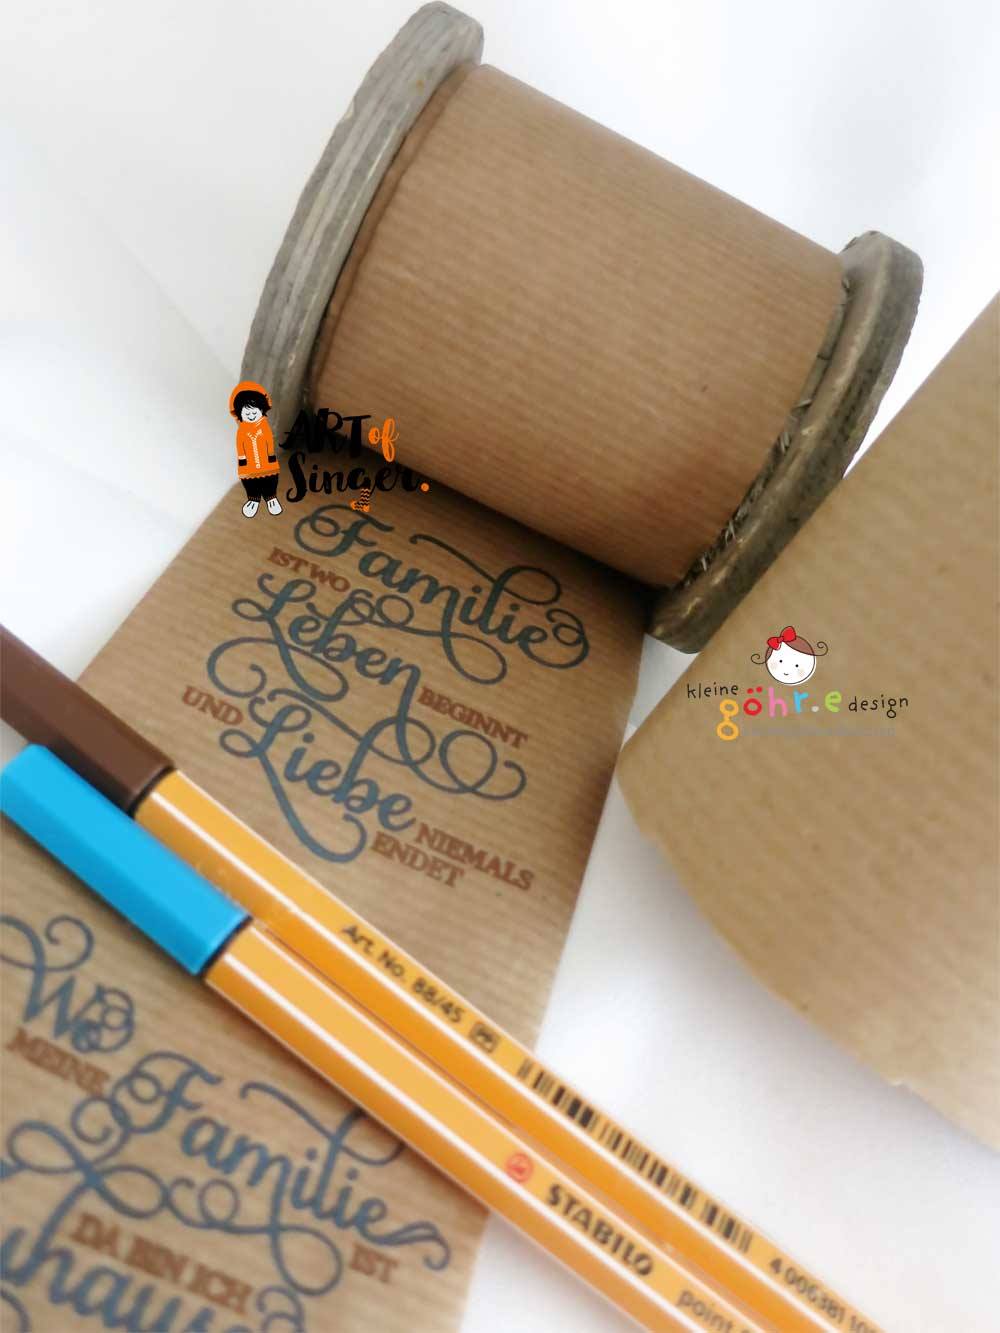 ART of
Singer.
Familie
IST WO
Leben
BEGINNT
UND
Liebe
NIEMALS
ENDET
kleine
göhr.e design
Art. No. 88/45
STABILO
point
4 006381
Wo
MEINE
Familie
IST
DA BIN ICH